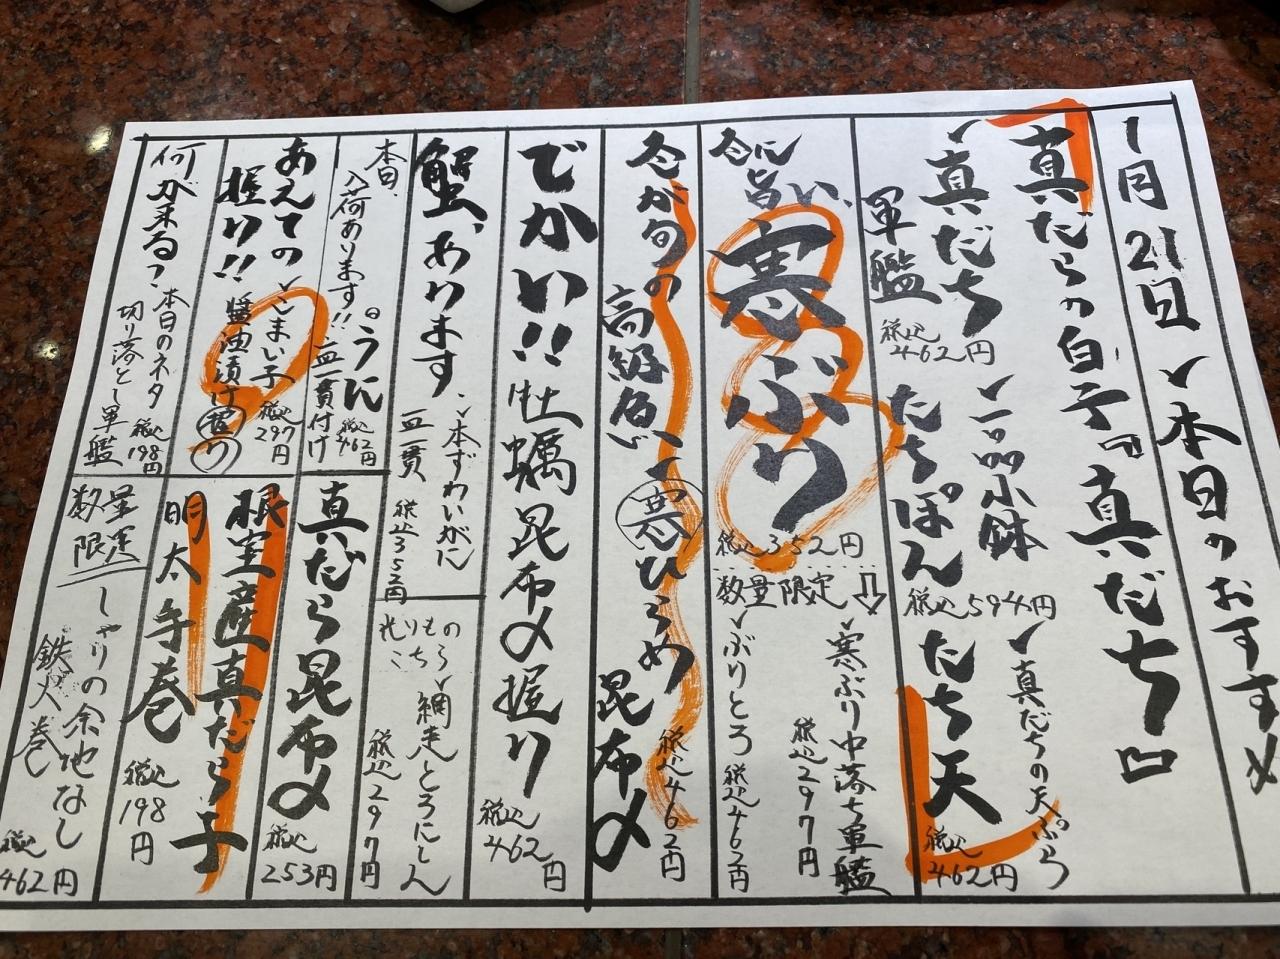 1月21日 ✓本日のおすすめ
真だらの白子『真だち』
✓真だち
軍艦
税込
462円
✓一品小鉢
たちぽん
税込594円
✓真だちの天ぷら
たち天
税込
462円
今に
旨い、
寒ぶり
税込352円
数量限定
✓寒ぶり中落ち軍艦
税込297円
✓ぶりとろ
税込462円
今が旬の
高級
寒ひらめ
昆布〆
税込462円
でかい!!牡蠣昆布〆握り
税込
462円
蟹、あります
✓本ずわいがに
一皿一貫
税込352円
光りもの
こちら
✓網走とろにしん
税込297円
本日、
入荷あります!!
うに
一皿一貫付け
税込
462円
真だら昆布〆
税込
253円
あえての
握り!!
✓こまい子
醤油漬け
税込
297円
根室産真だら子
明太手巻
税込
198
円
何が来る?
本日のネタ
切り落とし軍艦
税込
198円
数量
限定
しゃりの余地なし
鉄人巻
税込
462円